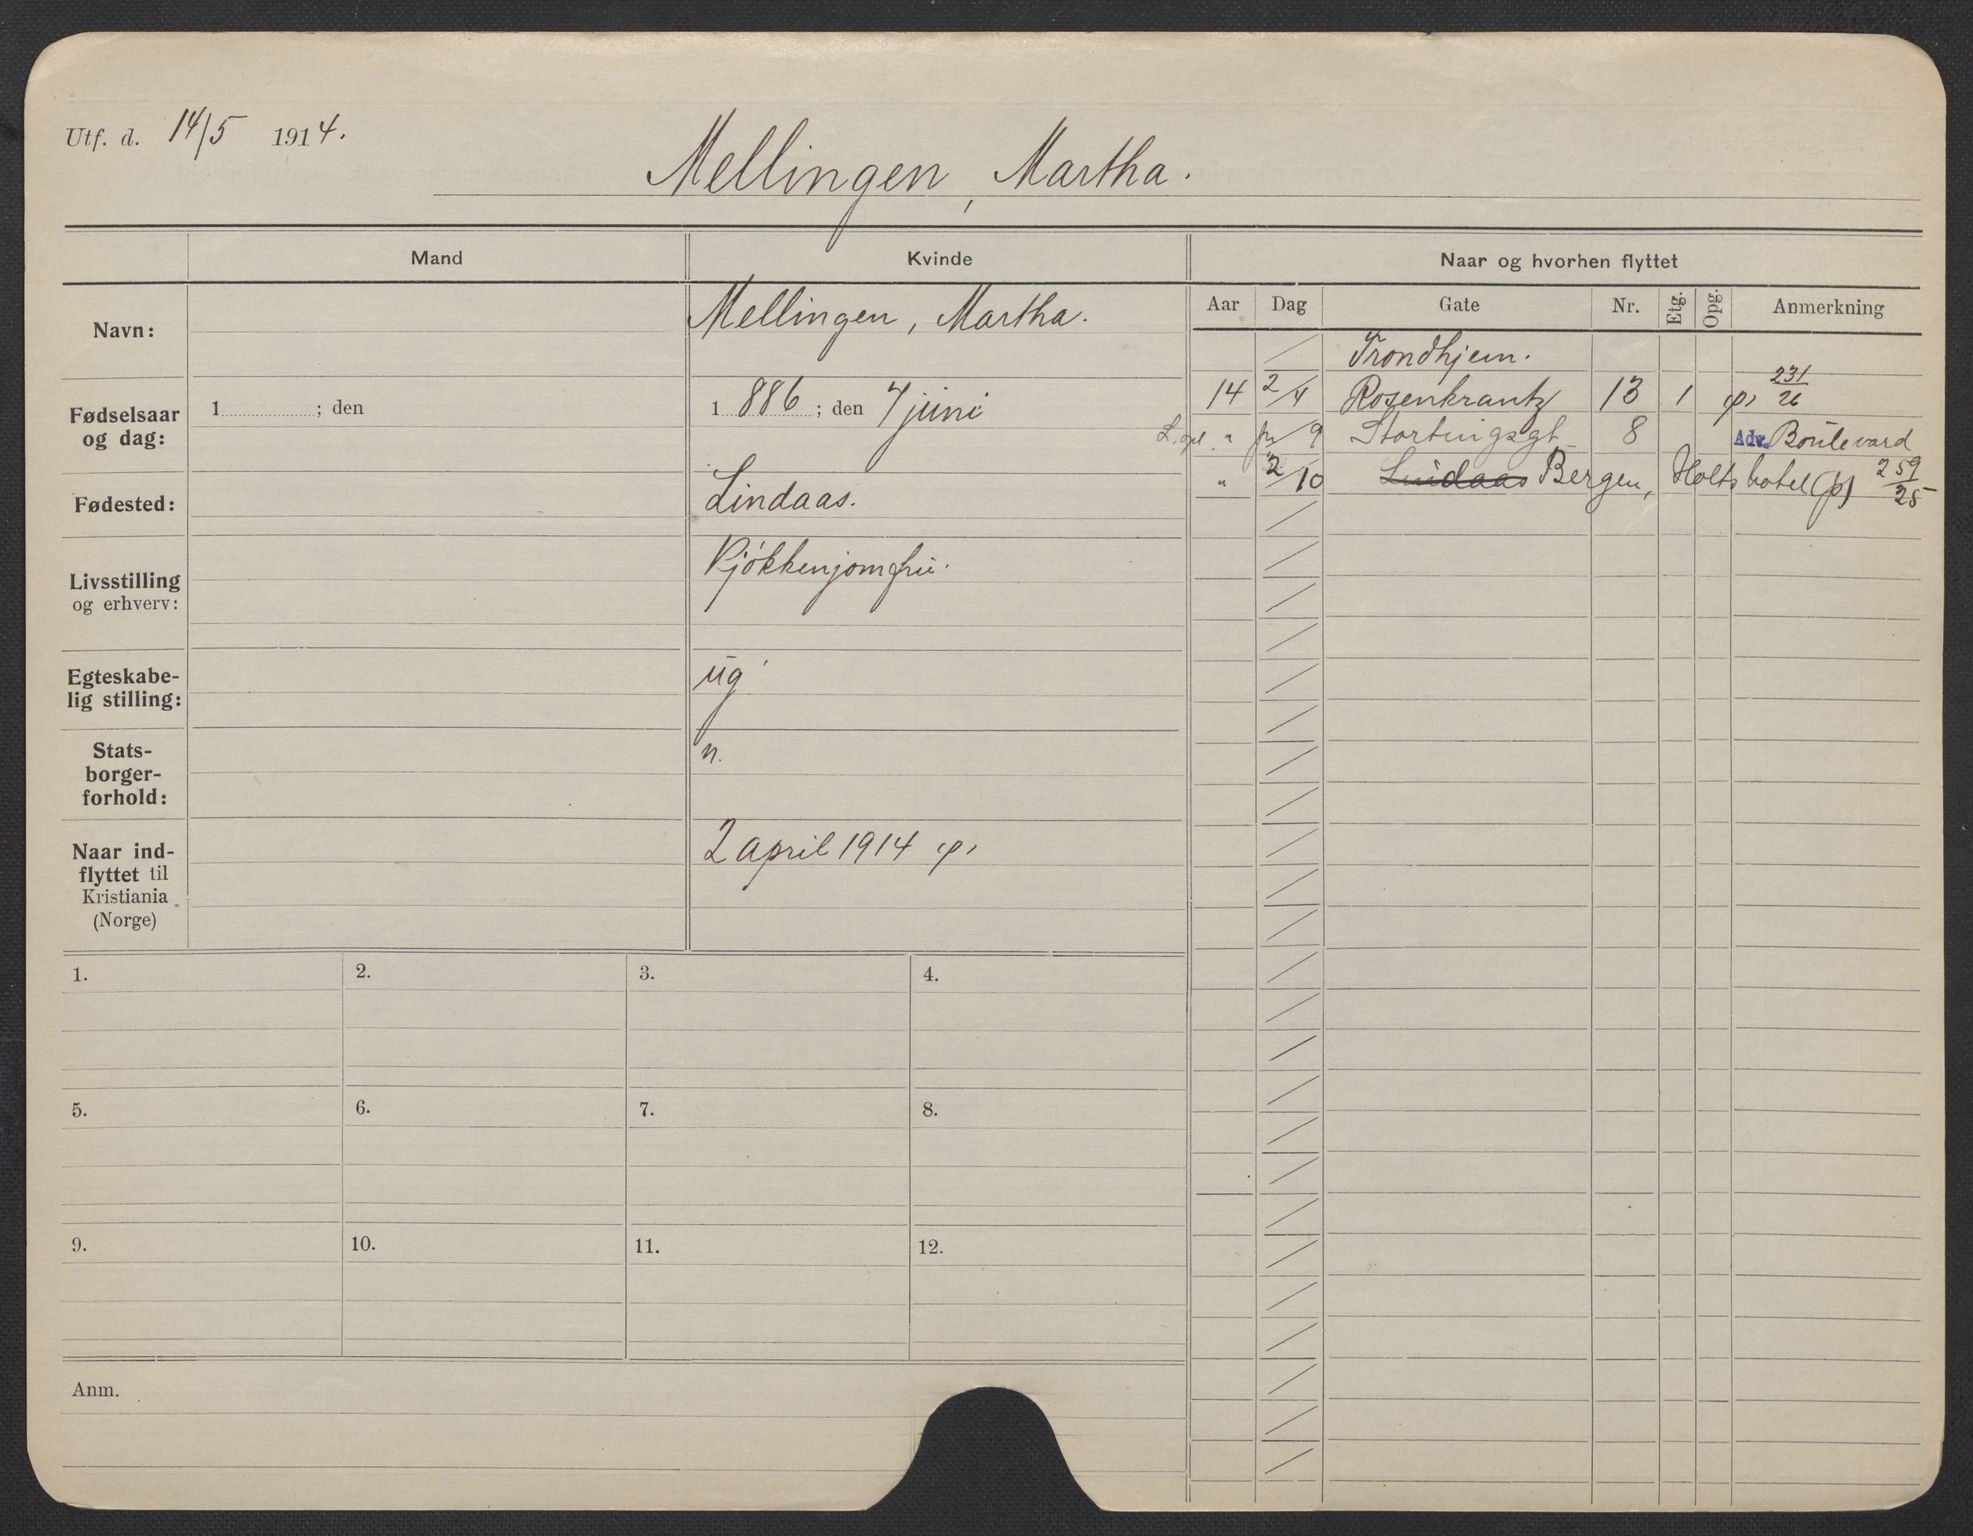 Utf. d. 14/5 1914.
Mellingen, Martha.
Mand
Kvinde
Naar og hvorhen flyttet
Aar Dag Gate Nr. Etg. Opg. Anmerkning
Navn:
Mellingen, Martha.
Fødselsaar
og dag:
1 ; den
1 886 ; den 7 juni
Fødested:
Lindaas.
Livsstilling
og erhverv:
Kjøkkenjomfru.
Egteskabe-
lig stilling:
ug
Stats-
borger-
forhold:
n.
Naar ind-
flyttet til
Kristiania
(Norge)
2 april 1914
Trondhjem.
14 2/4 Rosenkrantz 13 1 231/26
" /9 Stortingsgt 8 Adr. Boulevard
" 2/10 Lindaas Bergen, Holts hotel (p) 259/25
1. 2. 3. 4.
5. 6. 7. 8.
9. 10. 11. 12.
Anm.